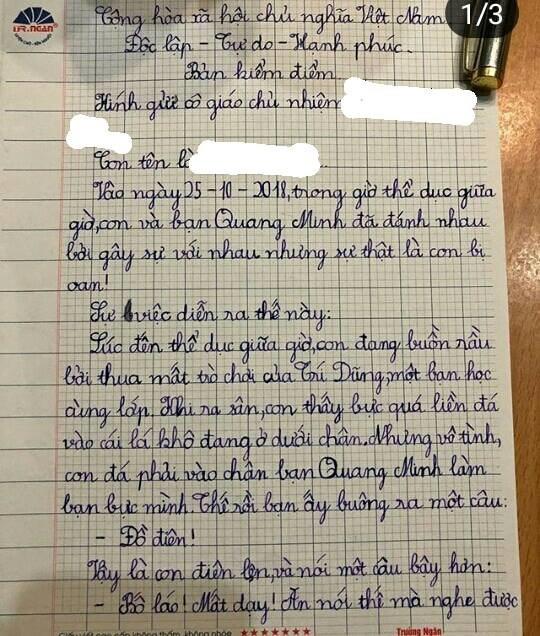 TR.NGÂN
1/3
Cộng hòa xã hội chủ nghĩa Việt Nam
Độc lập - Tự do - Hạnh phúc.
Bản kiểm điểm
Kính gửi cô giáo chủ nhiệm
Con tên là
Vào ngày 25-10-2018, trong giờ thể dục giữa
giờ, con và bạn Quang Minh đã đánh nhau
bởi gây sự với nhau nhưng sự thật là con bị
oan!
Sự việc diễn ra thế này:
Lúc đến thể dục giữa giờ, con đang buồn rầu
bởi thua mất trò chơi của Trí Dũng, một bạn học
cùng lớp. Khi ra sân, con thấy bực quá liền đá
vào cái lá khô đang ở dưới chân. Nhưng vô tình,
con đá phải vào chân bạn Quang Minh làm
bạn bực mình. Thế rồi bạn ấy buông ra một câu:
- Đồ điên!
Vậy là con điên lên, và nói một câu bậy hơn:
- Bố láo! Mất dạy! Ăn nói thế mà nghe được
Trường Ngân